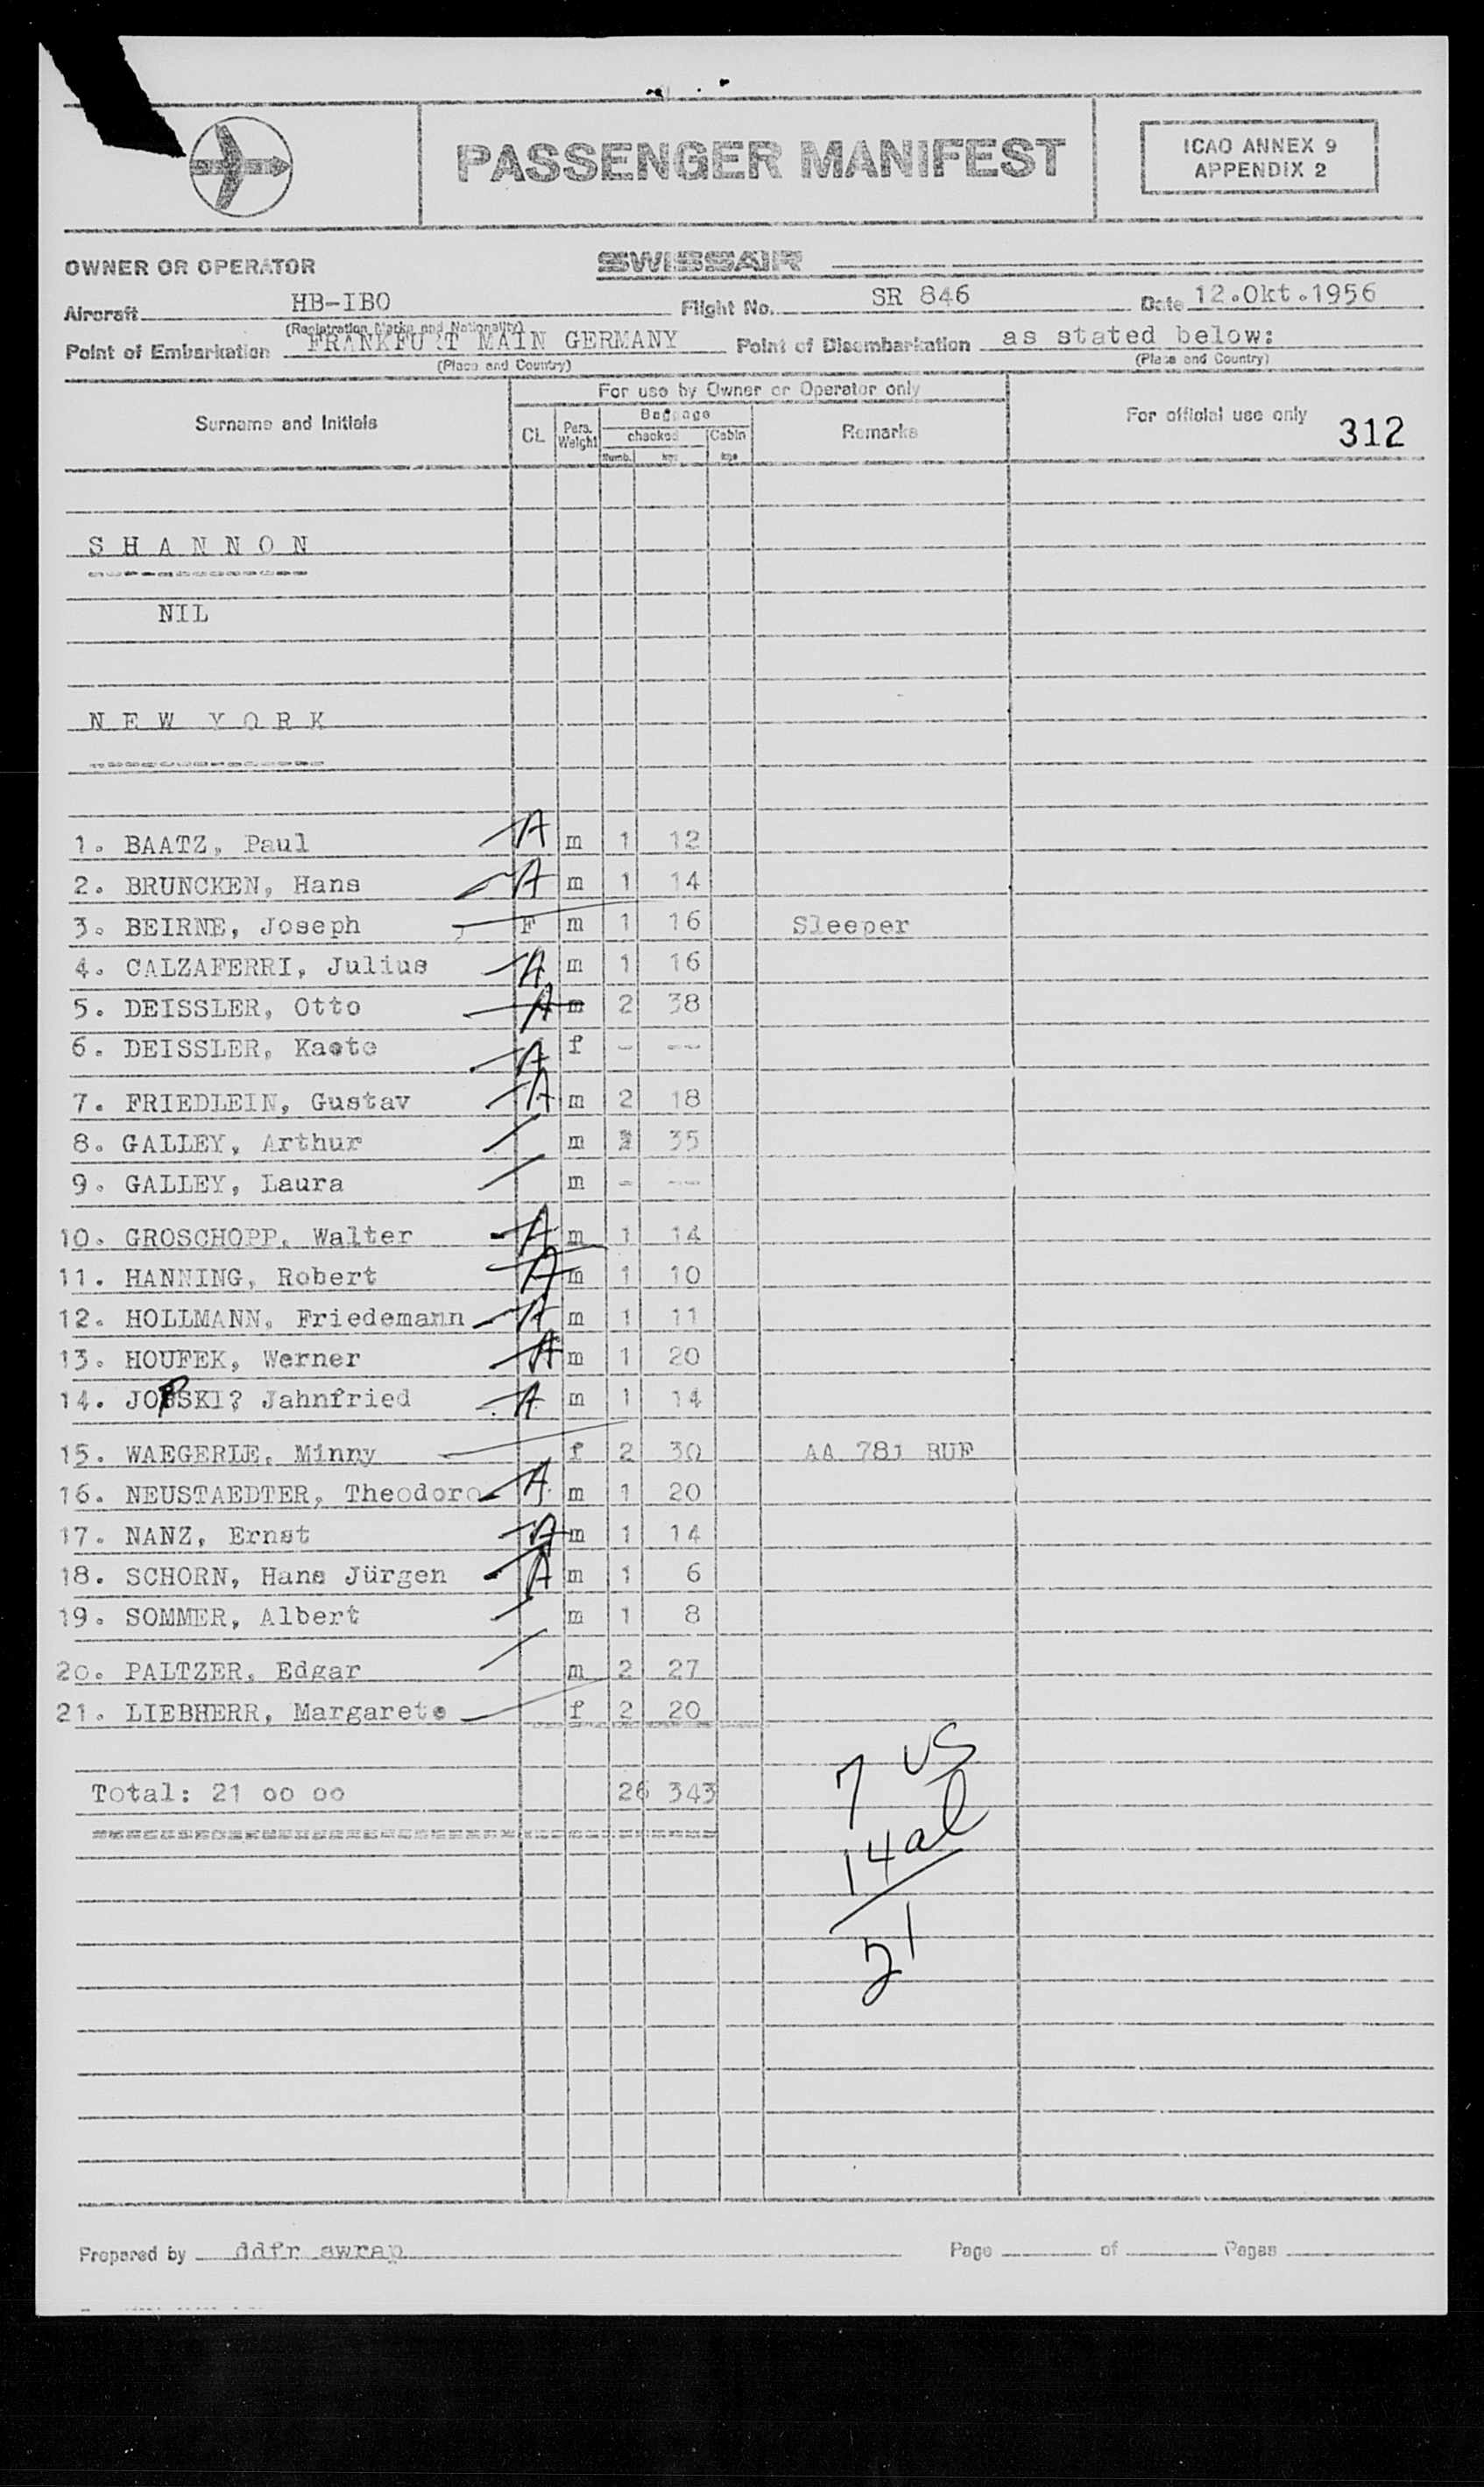 PASSENGER MANIFEST
ICAO ANNEX 9
APPENDIX 2
OWNER OR OPERATOR SWISSAIR
Aircraft HB-IBO Flight No. SR 846 Date 12.Okt.1956
(Registration Marks and Nationality)
Point of Embarkation FRANKFURT MAIN GERMANY Point of Disembarkation as stated below:
(Place and Country) (Place and Country)
Surname and Initials For use by Owner or Operator only For official use only 312
CL Pers. Weight Baggage checked Numb. kgs Cabin kgs Remarks
S H A N N O N
NIL
N E W Y O R K
1. BAATZ, Paul A m 1 12
2. BRUNCKEN, Hans A m 1 14
3. BEIRNE, Joseph F m 1 16 Sleeper
4. CALZAFERRI, Julius A m 1 16
5. DEISSLER, Otto A m 2 38
6. DEISSLER, Kaete A f - --
7. FRIEDLEIN, Gustav A m 2 18
8. GALLEY, Arthur m 35
9. GALLEY, Laura m - --
10. GROSCHOPP, Walter A m 1 14
11. HANNING, Robert A m 1 10
12. HOLLMANN, Friedemann A m 1 11
13. HOUFEK, Werner A m 1 20
14. JOPSKI? Jahnfried A m 1 14
15. WAEGERLE, Minny f 2 30 AA 781 BUF
16. NEUSTAEDTER, Theodoro A m 1 20
17. NANZ, Ernst A m 1 14
18. SCHORN, Hans Jürgen A m 1 6
19. SOMMER, Albert m 1 8
20. PALTZER, Edgar m 2 27
21. LIEBHERR, Margarete f 2 20
7 US
Total: 21 oo oo 26 343
14 al
21
Prepared by ddfr swrap Page of Pages